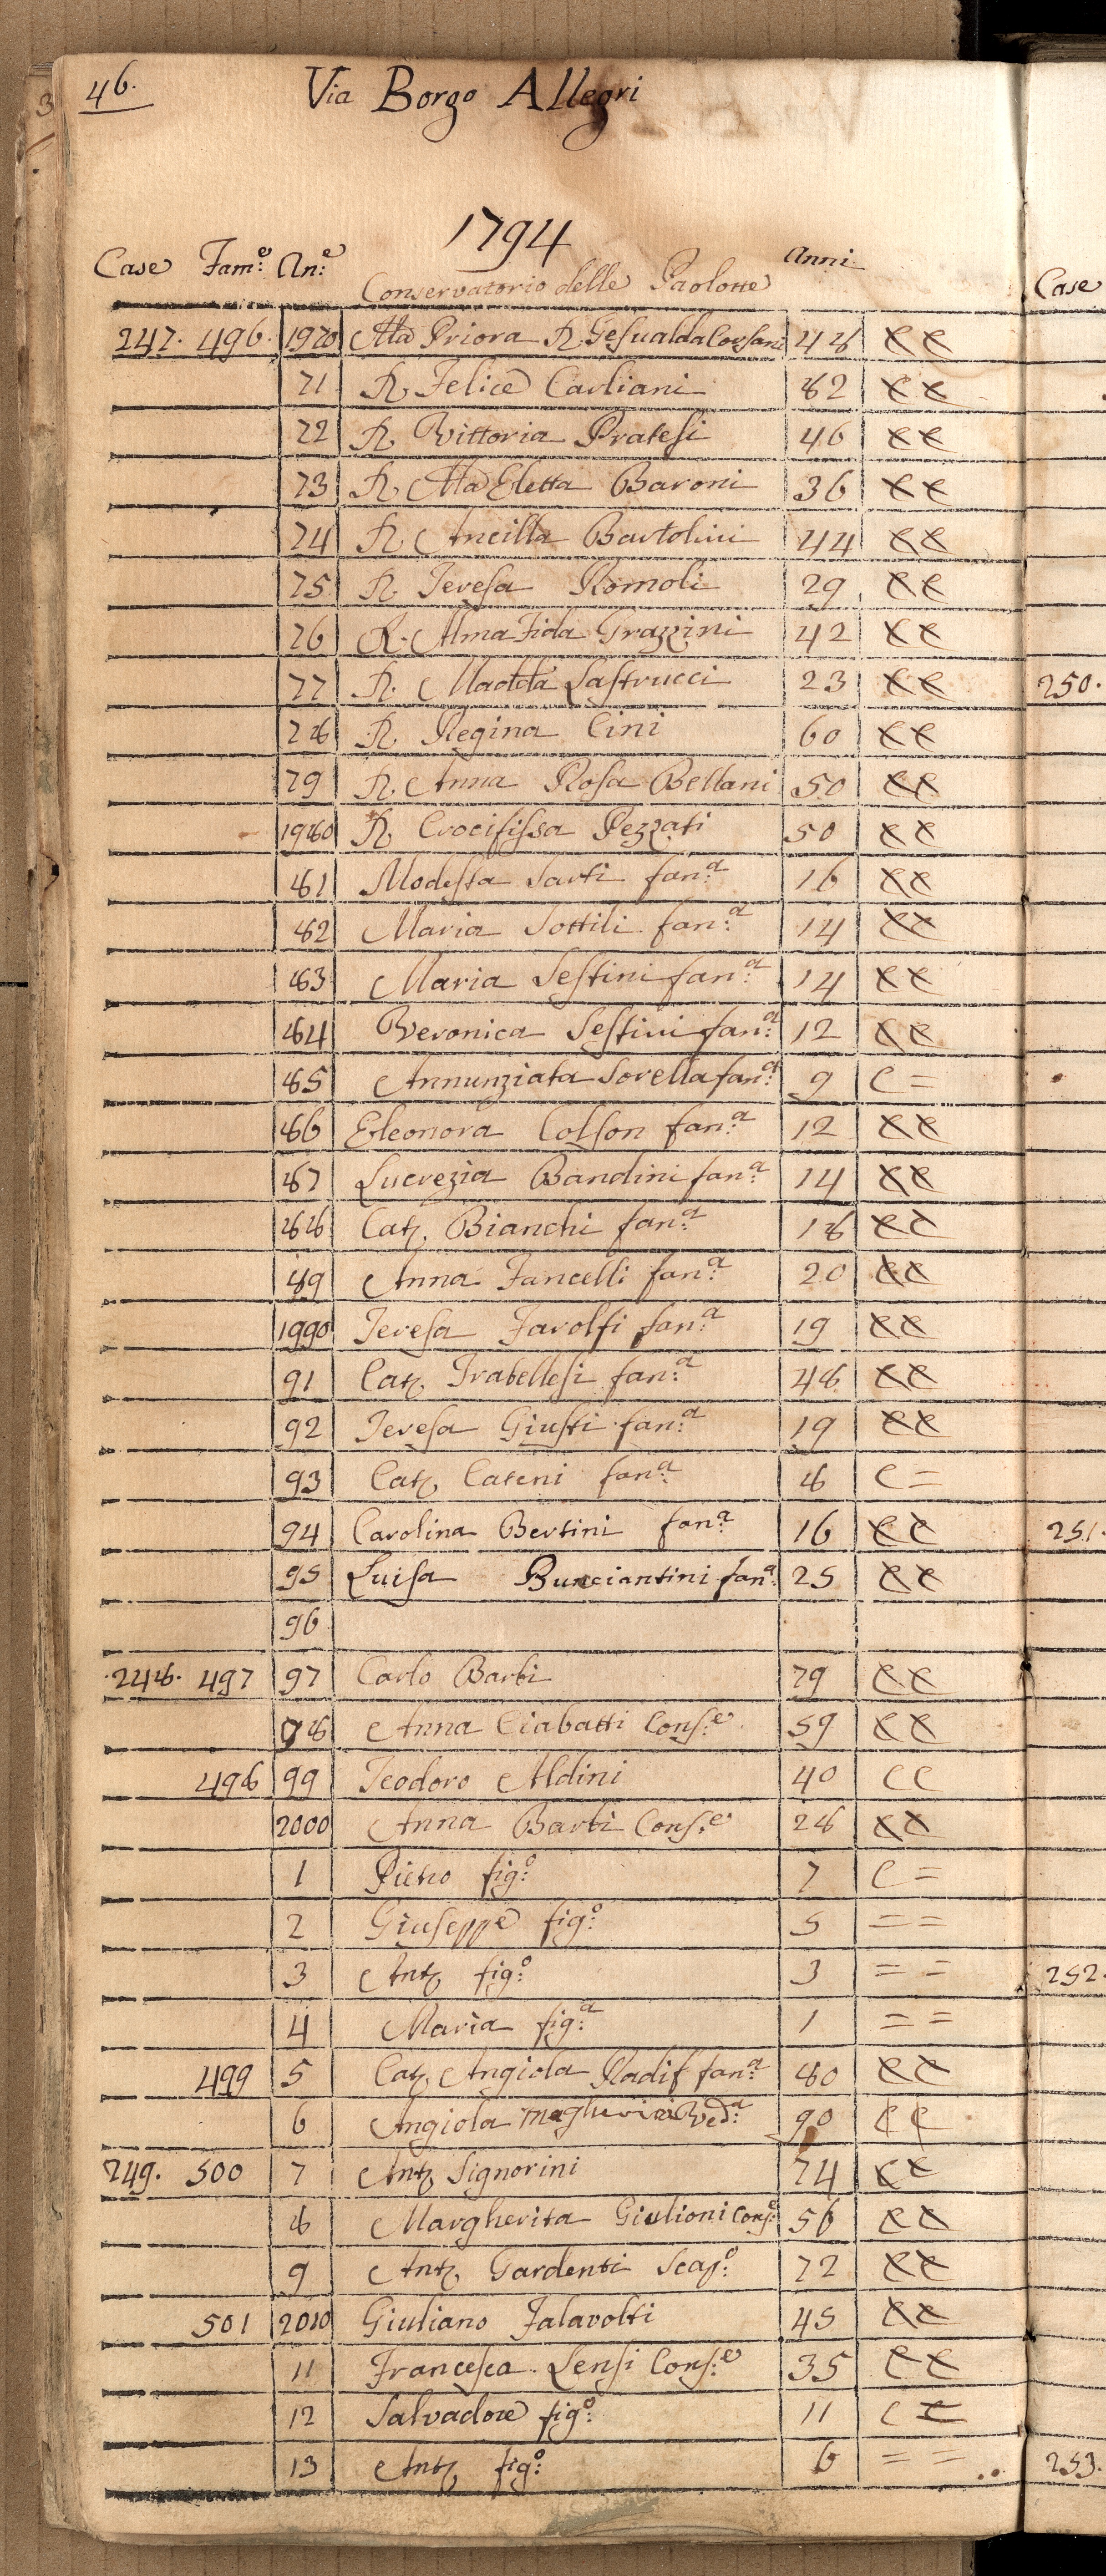 46.
Via Borgo Allegri
1794
Case Fam:e An:e Anni
Conservatorio delle Paolotte
247. 496. 1970 Ma Priora R. Gesualda Corsani 48 CC
71 R. Felice Carliani 82 CC
72 R. Vittoria Pratesi 46 CC
73 R. Ma Eletta Baroni 36 CC
74 R. Ancilla Bartolini 44 CC
75 R. Teresa Romoli 29 CC
76 R. Alma Fida Grazzini 42 CC
77 R. Madda Lastrucci 23 CC
78 R. Regina Cini 60 CC
79 R. Anna Rosa Bellani 50 CC
1980 R. Crocifissa Pezzati 50 CC
81 Modesta Sarti fan:a 16 CC
82 Maria Sottili fan:a 14 CC
83 Maria Sestini fan:a 14 CC
84 Veronica Sestini fan:a 12 CC
85 Annunziata Sorella fan:a 9 C =
86 Eleonora Colson fan:a 12 CC
87 Lucrezia Bandini fan:a 14 CC
88 Cat. Bianchi fan:a 18 CC
89 Anna Fancelli fan:a 20 CC
1990 Teresa Favolfi fan:a 19 CC
91 Cat. Trabellesi fan:a 48 CC
92 Teresa Giusti fan:a 19 CC
93 Cat. Cateni fan:a 8 C =
94 Carolina Bertini fan:a 16 CC
95 Luisa Bunciantini fan:a 25 CC
96
248. 497 97 Carlo Barbi 79 CC
98 Anna Ciabatti Cons:e 59 CC
498 99 Teodoro Aldini 40 CC
2000 Anna Barbi Cons:e 28 CC
1 Pietro fig:o 7 C =
2 Giuseppe fig:o 5 = =
3 Ant. fig:o 3 = =
4 Maria fig:a 1 = =
499 5 Cat. Angiola Radif fan:a 80 CC
6 Angiola Magherini Ved:a 90 CC
249. 500 7 Ant. Signorini 74 CC
8 Margherita Giulioni Cons:e 56 CC
9 Ant. Gardenti Scap:o 72 CC
501 2010 Giuliano Falavolti 45 CC
11 Francesca Lensi Cons:e 35 CC
12 Salvadore fig:o 11 CC
13 Ant. fig:o 6 = =
Case
250.
251.
252.
253.